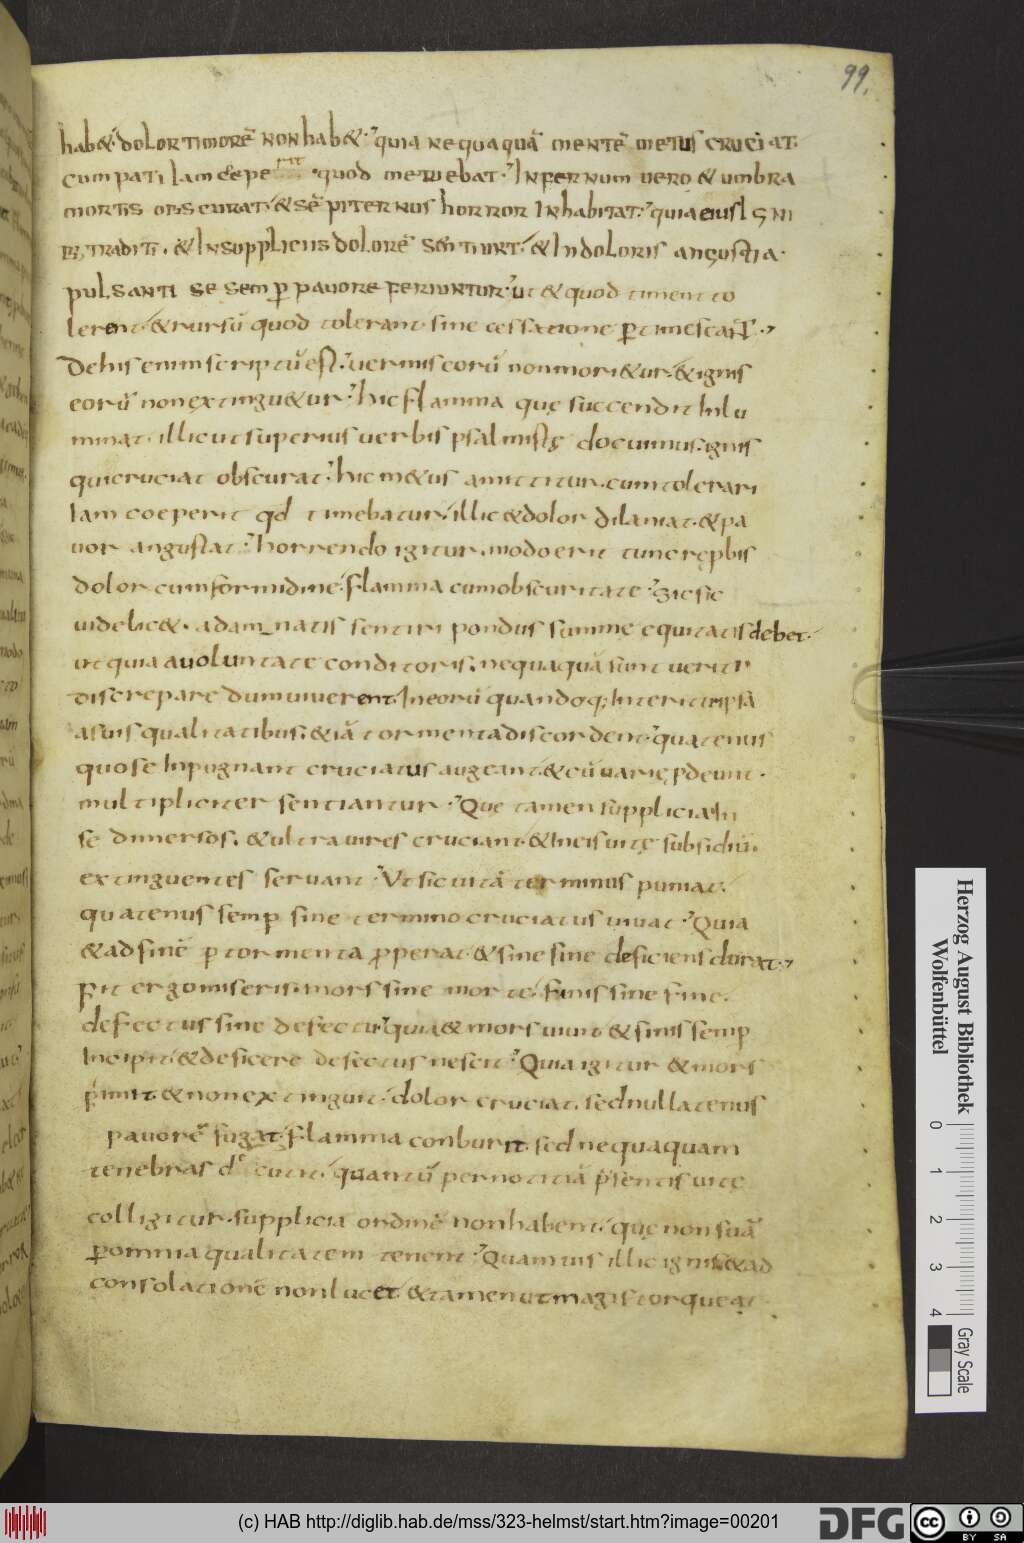 99.
hab&. dolor timorē non hab&. quia nequaquā mentē metus cruciat.
cum pati iam cepe rit quod metuebat. Infernum uero & umbra
mortis obscurat. & sēpiternus horror Inhabitat. quia eius Igni
b; traditi. & In suppliciis dolorē sentiunt. & In doloris angustia.
pulsanti se semp pauore feriuntur. ut & quod timent to
lerent. & rursū quod tolerant sine cessatione ptimescant.
De his enim scriptū est. uermis eorū non mori&ur. & ignis
eorū non extingu&ur. hic flamma quę succendit Inlu
minat. illic ut superius uerbis psalmistę docuimus. ignis
qui cruciat obscurat. hic m&us amittitur. cum tolerari
Iam coeperit qd timebatur. illic & dolor dilaniat. & pa
uor angustat. horrendo igitur modo erit tunc ręplis
dolor cum formidine. flamma cum obscuritate. sic sic
uidelic&. a damnatis sentiri pondus summe equitatis debet.
ut quia a uoluntate conditoris. nequaquā sunt ueriti
discrepare dum uiuerent. In eorū quandoq; Interitu ipsa
a suis qualitatibus. &iā tormenta discordent. quatenus
quo se Inpugnant cruciatus augeant. & cū uarię pdeunt.
multipliciter sentiantur. Quę tamen supplicia In
se dimersos. & ultra uires cruciant. & In eis uitę subsidiū.
extinguentes seruant. Ut sic uitā terminus puniat.
quatenus semp sine termino cruciatus uiuat. Quia
& ad finē p tormenta pperat. & sine fine deficiens durat.
Fit ergo miseris. mors sine morte. finis sine fine.
defectus sine defectu. quia & mors uiuit & finis semp
Incipit. & deficere defectus nescit. Quia igitur & mors
pimit. & non extinguit. dolor cruciat. sed nullatenus
pauorē fugat. flamma conburit. sed nequaquam
tenebras dꝭcutit. quantū per notitiā psentis uitę
colligitur. supplicia ordinē non habent. quę non suā
p omnia qualitatem tenent. Quamuis illic ignis & ad
consolationē non lucet. & tamen ut magis torqueat
Herzog August Bibliothek
Wolfenbüttel
0 1 2 3 4
Gray Scale
(c) HAB http://diglib.hab.de/mss/323-helmst/start.htm?image=00201
DFG
cc BY SA